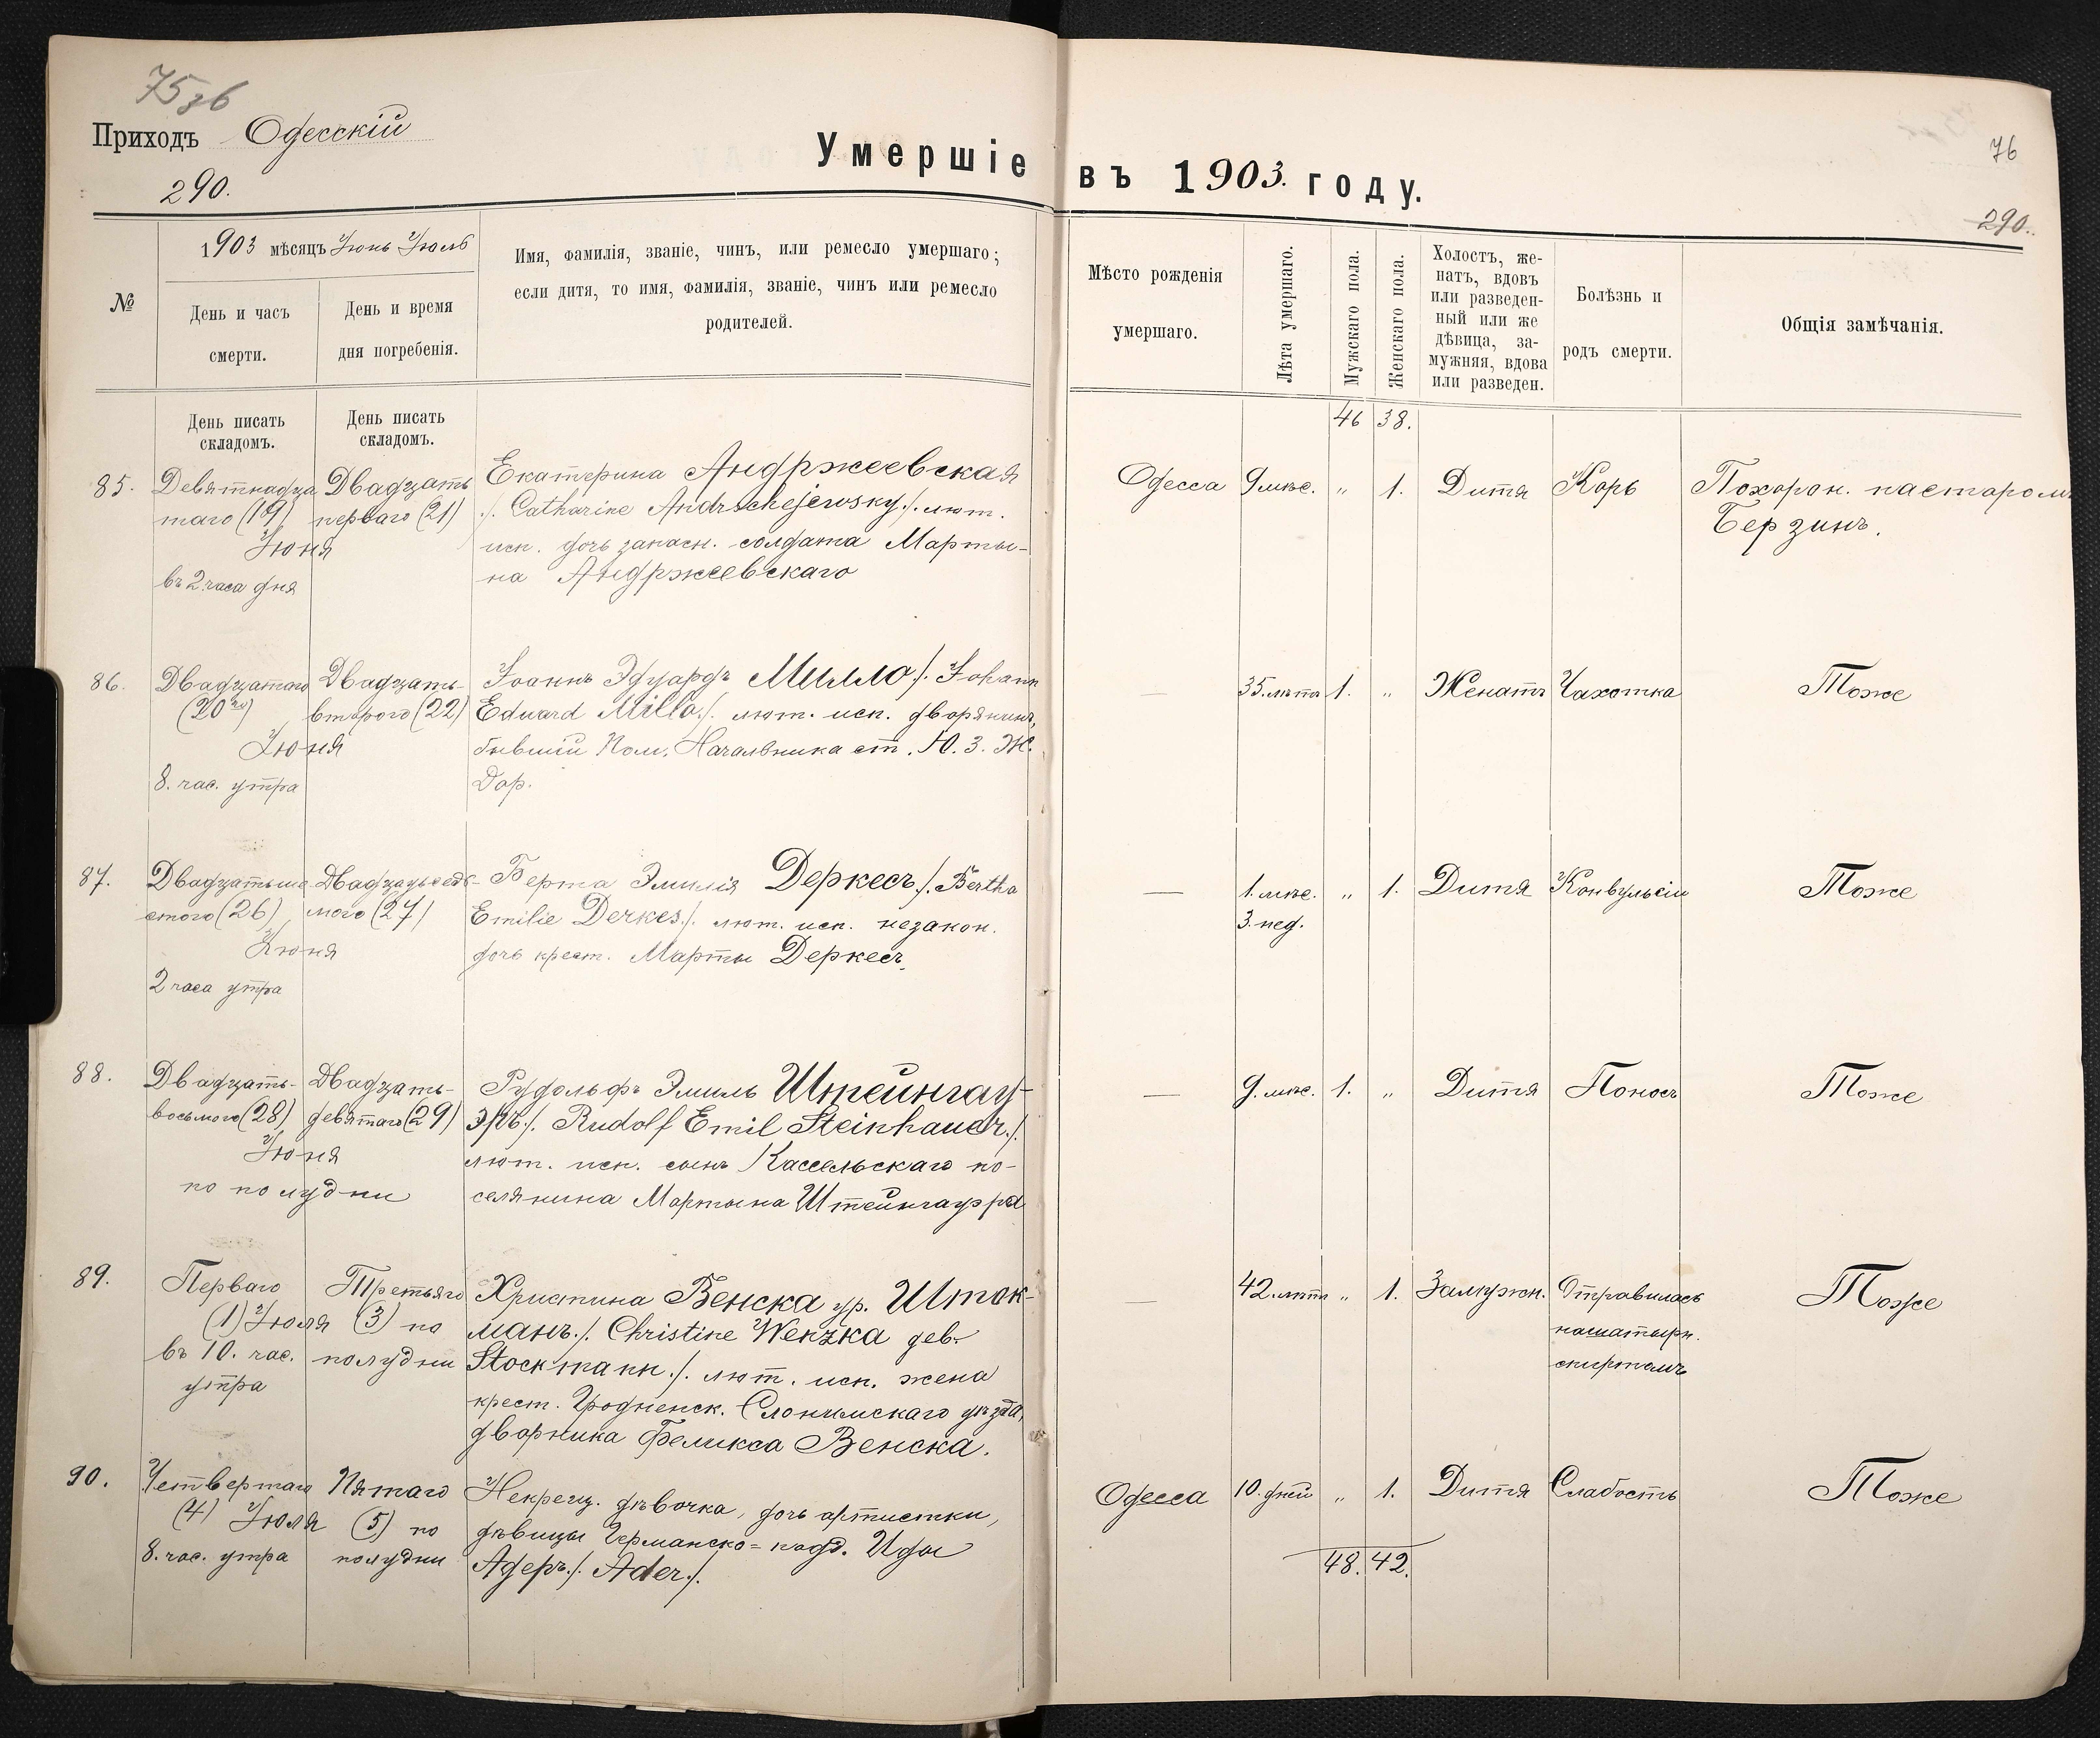 75 об
Приходъ Одесскій
290.
Умершіе въ 1903. году.
76
290.
№
1903 мѣсяцъ Іюнь Іюль
День и часъ
смерти.
День и время
дня погребенія.
Имя, фамилія, званіе, чинъ, или ремесло умершаго;
если дитя, то имя, фамилія, званіе, чинъ или ремесло
родителей.
Мѣсто рожденія
умершаго.
Лѣта умершаго.
Мужскаго пола.
Женскаго пола.
Холостъ, же-
натъ, вдовъ
или разведен-
ный или же
дѣвица, за-
мужняя, вдова
или разведен.
Болѣзнь и
родъ смерти.
Общія замѣчанія.
День писать
складомъ.
День писать
складомъ.
46 38.
85.
Девятнадца
таго (19)
Іюня
въ 2 часа дня
Двадцать
перваго (21)
Екатерина Андржеевская
./. Catharine Andrschejewsky ./. лют.
исп. дочь запасн. солдата Марты-
на Андржеевскаго
Одесса
9 мѣс.
„
1.
Дитя
Корь
Похорон. пасторомъ
Берзинъ.
86.
Двадцатаго
(20го)
Іюня
8. час. утра
Двадцать-
второго (22)
Іоаннъ Эдуардъ Милло ./. Johann
Eduard Millo ./. лют. исп. дворянинъ,
бывшій Пом. Начальника ст. Ю. З. Ж.
Дор.
—
35. лѣтъ
1.
„
Женатъ
Чахотка
Тоже
87.
Двадцатьше
стого (26)
Іюня
2 часа утра
Двадцатьседь-
мого (27)
Берта Эмилія Деркесъ ./. Bertha
Emilie Derkes ./. лют. исп. незакон.
дочь крест. Марты Деркесъ.
—
1. мѣс.
3. нед.
„
1.
Дитя
Конвульсіи
Тоже
88.
Двадцать-
восьмого (28)
Іюня
по полудни
Двадцать-
девятаго (29)
Рудольфъ Эмиль Штейнгау-
эръ ./. Rudolf Emil Steinhauer ./.
лют. исп. сынъ Кассельскаго по-
селянина Мартына Штейнгауэра
—
9. мѣс.
1.
„
Дитя
Поносъ
Тоже
89.
Перваго
(1) Іюля
въ 10. час.
утра
Третьяго
(3) по
полудни
Христина Венска ур. Шток-
манъ ./. Christine Wenzka geb.
Stockmann ./. лют. исп. жена
крест. Гродненск. Слонимскаго уѣзда,
дворника Феликса Венска.
—
42. лѣтъ
„
1.
Замужн.
Отравилась
нашатырн.
спиртомъ
Тоже
90.
Четвертаго
(4) Іюля
8. час. утра
Пятаго
(5) по
полудни
Некрещ. дѣвочка, дочь артистки,
дѣвицы Германско-подд. Иды
Адеръ ./. Ader ./.
Одесса
10. дней
„
1.
Дитя
Слабость
Тоже
48. 42.